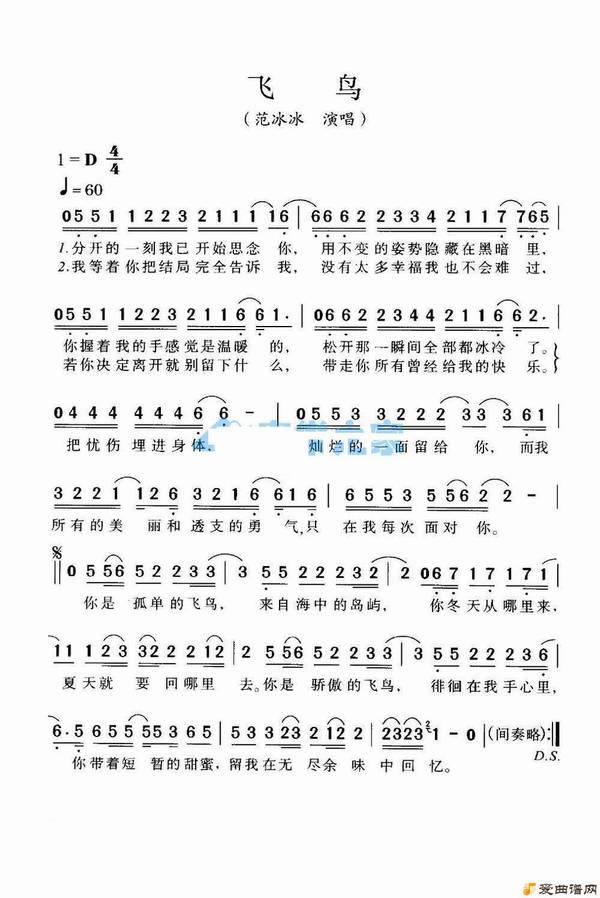 飞 鸟
(范冰冰 演唱)
1=D 4/4
♩=60
0551 1223 2111 16 | 6662 2334 2117 765 |
1.分开的一刻我已开始思念 你， 用不变的姿势隐藏在黑暗 里，
2.我等着你把结局完全告诉 我， 没有太多幸福我也不会难 过，
0551 1223 2116 61. | 0662 2334 2116 62. |
你握着我的手感觉是温暖 的， 松开那一瞬间全部都冰冷 了。
若你决定离开就别留下什 么， 带走你所有曾经给我的快 乐。
044 4 4446 6 - | 0553 3222 233 361 |
把忧伤 埋进身体， 灿烂的 一面留给 你， 而我
3221 1223 3216 616 | 6553 5 556 2 - |
所有的美 丽和透支的勇 气,只 在我每次 面对 你。
0 556 52232 | 3 55 52232 | 2 067 17171 |
你是 孤单的飞鸟， 来自海中的岛屿， 你冬天从哪里来，
11 123 323 36 | 2 556 52232 | 2 55 52236 |
夏天就 要 回哪里 去。你是 骄傲的飞鸟， 徘徊在我手心里，
6.5 655 55365 | 5333 2323 2 02 | 2323 1 - 0 | (间奏略) :‖
你带着短 暂的甜蜜，留我在无 尽余 味 中 回 忆。
D.S.
爱曲谱网